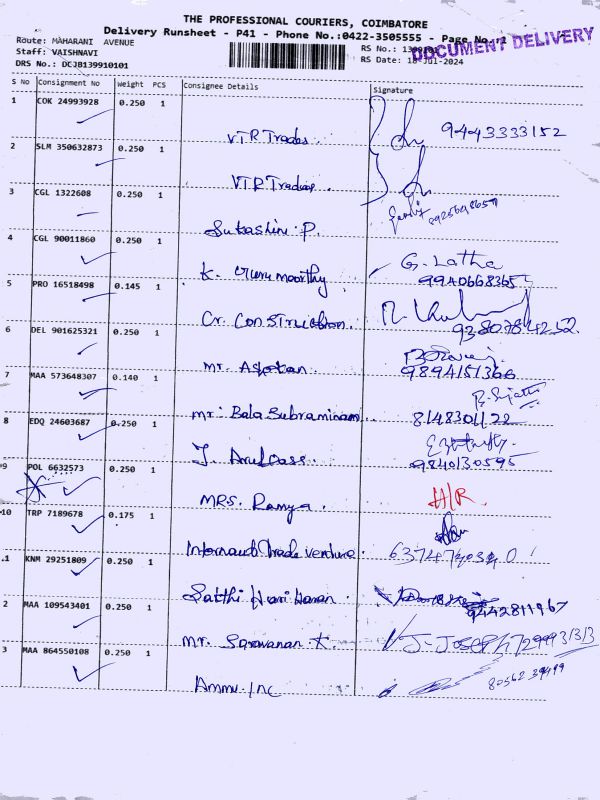 THE PROFESSIONAL COURIERS, COIMBATORE
Delivery Runsheet - P41 - Phone No.:0422-3505555 - Page No.:1
DOCUMENT DELIVERY
Route: MAHARANI AVENUE
Staff: VAISHNAVI RS No.:
DRS No.: DCJB139910101 RS Date: 18-Jul-2024
S No Consignment No Weight PCS Consignee Details Signature
1 COK 24993928 0.250 1 VTR Trades 9443333152
2 SLM 350632873 0.250 1 VTR Trades
3 CGL 1322608 0.250 1 Sukashini P.
4 CGL 90011860 0.250 1 K. Gurumoorthy G. Latha
5 PRO 16518498 0.145 1 Cr. Construction
6 DEL 901625321 0.250 1 mr. Asokan 9894151366
7 MAA 573648307 0.140 1 mr. Bala Subraminam 8148301122
8 EDQ 24603687 0.250 1 J. Arul Dass 9840130595
9 POL 6632573 0.250 1 MRS. Ramya H/R
10 TRP 7189678 0.175 1 Trade venture
.1 KNM 29251809 0.250 1 Sakthi Hari Haran 9442811967
2 MAA 109543401 0.250 1 mr. Saravanan K J-JOSEPH
3 MAA 864550108 0.250 1 Ammu Inc